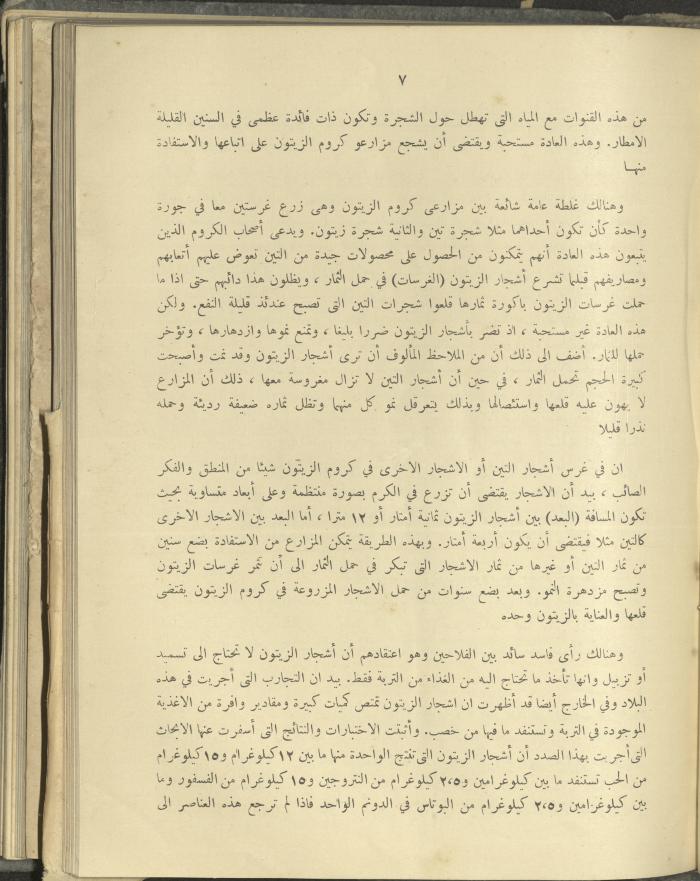 ٧
من هذه القنوات مع المياه التى تهطل حول الشجرة وتكون ذات فائدة عظمى في السنين القليلة
الامطار. وهذه العادة مستحبة ويقتضى أن يشجع مزارعو كروم الزيتون على اتباعها والاستفادة
منهـا
وهنالك غلطة عامة شائعة بين مزارعى كروم الزيتون وهى زرع غرستين معا في جورة
واحدة كأن تكون أحداهما مثلا شجرة تين والثانية شجرة زيتون. ويدعى أصحاب الكروم الذين
يتبعون هذه العادة أنهم يتمكنون من الحصول على محصولات جيدة من التين تعوض عليهم أتعابهم
ومصاريفهم قبلما تشرع أشجار الزيتون (الغرسات) في حمل الثمار ، ويظلون هذا دائبهم حتى اذا ما
حملت غرسات الزيتون باكورة ثمارها قلعوا شجرات التين التى تصبح عندئذ قليلة النفع. ولكن
هذه العادة غير مستحبة ، اذ تضر بأشجار الزيتون ضررا بليغا ، وتمنع نموها وازدهارها ، وتؤخر
حملها للثمار. أضف الى ذلك أن من الملاحظ المألوف أن ترى أشجار الزيتون وقد نمت وأصبحت
كبيرة الحجم تحمل الثمار ، في حين أن أشجار التين لا تزال مغروسة معها ، ذلك أن المزارع
لا يهون عليه قلعها واستئصالها وبذلك يتعرقل نمو كل منهما وتظل ثماره ضعيفة رديئة وحمله
نذرا قليلا
ان في غرس أشجار التين أو الاشجار الاخرى في كروم الزيتون شيئا من المنطق والفكر
الصائب ، بيد أن الاشجار يقتضى أن تزرع في الكرم بصورة منتظمة وعلى أبعاد متساوية بحيث
تكون المسافة (البعد) بين أشجار الزيتون ثمانية أمتار أو ١٢ مترا ، أما البعد بين الاشجار الاخرى
كالتين مثلا فيقتضى أن يكون أربعة أمتار. وبهذه الطريقة يتمكن المزارع من الاستفادة بضع سنين
من ثمار التين أو غيرها من ثمار الاشجار التى تبكر في حمل الثمار الى أن تثمر غرسات الزيتون
وتصبح مزدهرة النمو. وبعد بضع سنوات من حمل الاشجار المزروعة في كروم الزيتون يقتضى
قلعها والعناية بالزيتون وحده
وهنالك رأى فاسد سائد بين الفلاحين وهو اعتقادهم أن أشجار الزيتون لا تحتاج الى تسميد
أو تزبيل وانها تأخذ ما تحتاج اليه من الغذاء من التربة فقط. بيد ان التجارب التى أجريت في هذه
البلاد وفي الخارج أيضا قد أظهرت ان اشجار الزيتون تمتص كميات كبيرة ومقادير وافرة من الاغذية
الموجودة في التربة وتستنفد ما فيها من خصب. وأثبتت الاختبارات والنتائج التى أسفرت عنها الابحاث
التى أجريت بهذا الصدد أن أشجار الزيتون التى تنتج الواحدة منها ما بين ١٢ كيلوغرام و١٥ كيلوغرام
من الحب تستنفد ما بين كيلوغرامين و٢،٥ كيلوغرام من النتروجين و١٥ كيلوغرام من الفسفور وما
بين كيلوغرامين و٢،٥ كيلوغرام من البوتاس في الدونم الواحد فاذا لم ترجع هذه العناصر الى